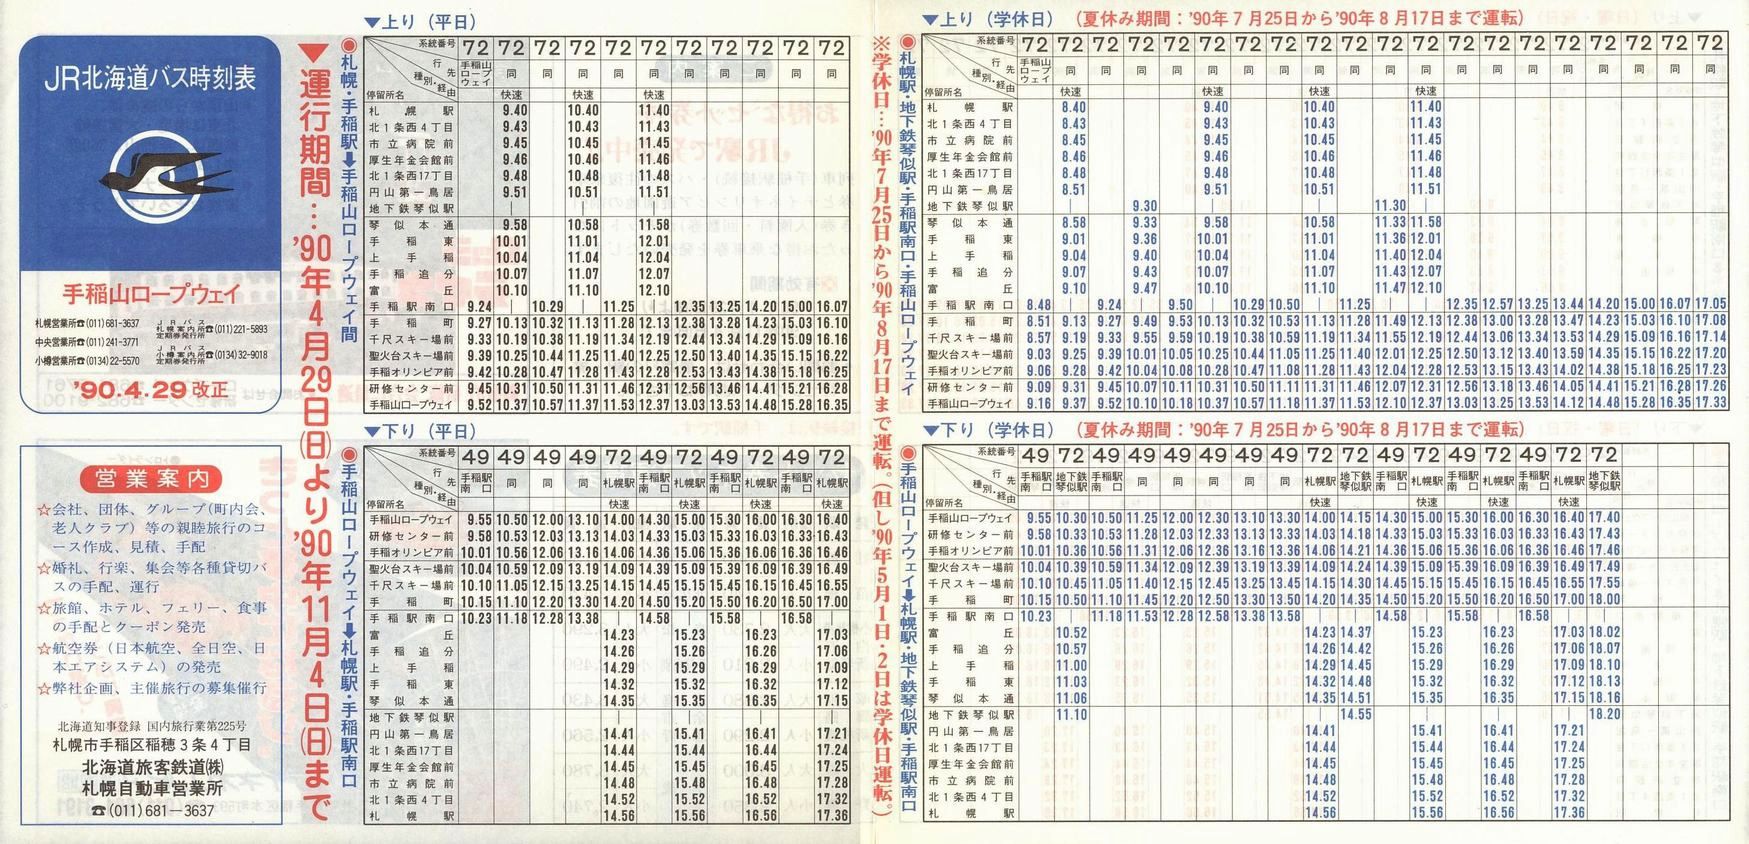 JR北海道バス時刻表
手稲山ロープウェイ
札幌営業所☎(011)681-3637
中央営業所☎(011)241-3771
小樽営業所☎(0134)22-5570
JRバス札幌案内所定期券発行所☎(011)221-5893
JRバス小樽案内所定期券発行所☎(0134)32-9018
'90.4.29改正
営業案内
☆会社、団体、グループ(町内会、
老人クラブ)等の親睦旅行のコ
ース作成、見積、手配
☆婚礼、行楽、集会等各種貸切バ
スの手配、運行
☆旅館、ホテル、フェリー、食事
の手配とクーポン発売
☆航空券(日本航空、全日空、日
本エアシステム)の発売
☆弊社企画、主催旅行の募集催行
北海道知事登録 国内旅行業第225号
札幌市手稲区稲穂3条4丁目
北海道旅客鉄道㈱
札幌自動車営業所
☎(011)681-3637
▼運行期間…'90年4月29日(日)より'90年11月4日(日)まで
▼上り(平日)
◉札幌・手稲駅➡手稲山ロープウェイ間
系統番号 72 72 72 72 72 72 72 72 72 72 72
行先 手稲山ロープウェイ 同 同 同 同 同 同 同 同 同 同
種別・経由 快速 快速 快速
停留所名
札幌駅 9.40 10.40 11.40
北1条西4丁目 9.43 10.43 11.43
市立病院前 9.45 10.45 11.45
厚生年金会館前 9.46 10.46 11.46
北1条西17丁目 9.48 10.48 11.48
円山第一鳥居 9.51 10.51 11.51
地下鉄琴似駅 | | |
琴似本通 9.58 10.58 11.58
手稲東 10.01 11.01 12.01
上手稲 10.04 11.04 12.04
手稲追分 10.07 11.07 12.07
富丘 10.10 11.10 12.10
手稲駅南口 9.24 | 10.29 | 11.25 | 12.35 13.25 14.20 15.00 16.07
手稲町 9.27 10.13 10.32 11.13 11.28 12.13 12.38 13.28 14.23 15.03 16.10
千尺スキー場前 9.33 10.19 10.38 11.19 11.34 12.19 12.44 13.34 14.29 15.09 16.16
聖火台スキー場前 9.39 10.25 10.44 11.25 11.40 12.25 12.50 13.40 14.35 15.15 16.22
手稲オリンピア前 9.42 10.28 10.47 11.28 11.43 12.28 12.53 13.43 14.38 15.18 16.25
研修センター前 9.45 10.31 10.50 11.31 11.46 12.31 12.56 13.46 14.41 15.21 16.28
手稲山ロープウェイ 9.52 10.37 10.57 11.37 11.53 12.37 13.03 13.53 14.48 15.28 16.35
▼下り(平日)
◉手稲山ロープウェイ➡札幌駅・手稲駅南口
系統番号 49 49 49 49 72 49 72 49 72 49 72
行先 手稲駅南口 同 同 同 札幌駅 手稲駅南口 札幌駅 手稲駅南口 札幌駅 手稲駅南口 札幌駅
種別・経由 快速 快速 快速 快速
停留所名
手稲山ロープウェイ 9.55 10.50 12.00 13.10 14.00 14.30 15.00 15.30 16.00 16.30 16.40
研修センター前 9.58 10.53 12.03 13.13 14.03 14.33 15.03 15.33 16.03 16.33 16.43
手稲オリンピア前 10.01 10.56 12.06 13.16 14.06 14.36 15.06 15.36 16.06 16.36 16.46
聖火台スキー場前 10.04 10.59 12.09 13.19 14.09 14.39 15.09 15.39 16.09 16.39 16.49
千尺スキー場前 10.10 11.05 12.15 13.25 14.15 14.45 15.15 15.45 16.15 16.45 16.55
手稲町 10.15 11.10 12.20 13.30 14.20 14.50 15.20 15.50 16.20 16.50 17.00
手稲駅南口 10.23 11.18 12.28 13.38 | 14.58 | 15.58 | 16.58 |
富丘 14.23 15.23 16.23 17.03
手稲追分 14.26 15.26 16.26 17.06
上手稲 14.29 15.29 16.29 17.09
手稲東 14.32 15.32 16.32 17.12
琴似本通 14.35 15.35 16.35 17.15
地下鉄琴似駅 | | | |
円山第一鳥居 14.41 15.41 16.41 17.21
北1条西17丁目 14.44 15.44 16.44 17.24
厚生年金会館前 14.45 15.45 16.45 17.25
市立病院前 14.48 15.48 16.48 17.28
北1条西4丁目 14.52 15.52 16.52 17.32
札幌駅 14.56 15.56 16.56 17.36
※学休日…'90年7月25日から'90年8月17日まで運転。(但し'90年5月1日・2日は学休日運転。)
▼上り(学休日) (夏休み期間:'90年7月25日から'90年8月17日まで運転)
◉札幌駅・地下鉄琴似駅・手稲駅南口・手稲山ロープウェイ
系統番号 72 72 72 72 72 72 72 72 72 72 72 72 72 72 72 72 72 72 72 72
行先 手稲山ロープウェイ 同 同 同 同 同 同 同 同 同 同 同 同 同 同 同 同 同 同 同
種別・経由 快速 快速 快速 快速
停留所名
札幌駅 8.40 9.40 10.40 11.40
北1条西4丁目 8.43 9.43 10.43 11.43
市立病院前 8.45 9.45 10.45 11.45
厚生年金会館前 8.46 9.46 10.46 11.46
北1条西17丁目 8.48 9.48 10.48 11.48
円山第一鳥居 8.51 9.51 10.51 11.51
地下鉄琴似駅 | 9.30 | | 11.30 |
琴似本通 8.58 9.33 9.58 10.58 11.33 11.58
手稲東 9.01 9.36 10.01 11.01 11.36 12.01
上手稲 9.04 9.40 10.04 11.04 11.40 12.04
手稲追分 9.07 9.43 10.07 11.07 11.43 12.07
富丘 9.10 9.47 10.10 11.10 11.47 12.10
手稲駅南口 8.48 | 9.24 | 9.50 | 10.29 10.50 | 11.25 | | 12.35 12.57 13.25 13.44 14.20 15.00 16.07 17.05
手稲町 8.51 9.13 9.27 9.49 9.53 10.13 10.32 10.53 11.13 11.28 11.49 12.13 12.38 13.00 13.28 13.47 14.23 15.03 16.10 17.08
千尺スキー場前 8.57 9.19 9.33 9.55 9.59 10.19 10.38 10.59 11.19 11.34 11.55 12.19 12.44 13.06 13.34 13.53 14.29 15.09 16.16 17.14
聖火台スキー場前 9.03 9.25 9.39 10.01 10.05 10.25 10.44 11.05 11.25 11.40 12.01 12.25 12.50 13.12 13.40 13.59 14.35 15.15 16.22 17.20
手稲オリンピア前 9.06 9.28 9.42 10.04 10.08 10.28 10.47 11.08 11.28 11.43 12.04 12.28 12.53 13.15 13.43 14.02 14.38 15.18 16.25 17.23
研修センター前 9.09 9.31 9.45 10.07 10.11 10.31 10.50 11.11 11.31 11.46 12.07 12.31 12.56 13.18 13.46 14.05 14.41 15.21 16.28 17.26
手稲山ロープウェイ 9.16 9.37 9.52 10.10 10.18 10.37 10.57 11.18 11.37 11.53 12.10 12.37 13.03 13.25 13.53 14.12 14.48 15.28 16.35 17.33
▼下り(学休日) (夏休み期間:'90年7月25日から'90年8月17日まで運転)
◉手稲山ロープウェイ➡札幌駅・地下鉄琴似駅・手稲駅南口
系統番号 49 72 49 49 49 49 49 49 72 72 49 72 49 72 49 72 72
行先 手稲駅南口 地下鉄琴似駅 手稲駅南口 同 同 同 同 同 札幌駅 地下鉄琴似駅 手稲駅南口 札幌駅 手稲駅南口 札幌駅 手稲駅南口 札幌駅 地下鉄琴似駅
種別・経由 快速 快速 快速 快速
停留所名
手稲山ロープウェイ 9.55 10.30 10.50 11.25 12.00 12.30 13.10 13.30 14.00 14.15 14.30 15.00 15.30 16.00 16.30 16.40 17.40
研修センター前 9.58 10.33 10.53 11.28 12.03 12.33 13.13 13.33 14.03 14.18 14.33 15.03 15.33 16.03 16.33 16.43 17.43
手稲オリンピア前 10.01 10.36 10.56 11.31 12.06 12.36 13.16 13.36 14.06 14.21 14.36 15.06 15.36 16.06 16.36 16.46 17.46
聖火台スキー場前 10.04 10.39 10.59 11.34 12.09 12.39 13.19 13.39 14.09 14.24 14.39 15.09 15.39 16.09 16.39 16.49 17.49
千尺スキー場前 10.10 10.45 11.05 11.40 12.15 12.45 13.25 13.45 14.15 14.30 14.45 15.15 15.45 16.15 16.45 16.55 17.55
手稲町 10.15 10.50 11.10 11.45 12.20 12.50 13.30 13.50 14.20 14.35 14.50 15.20 15.50 16.20 16.50 17.00 18.00
手稲駅南口 10.23 | 11.18 11.53 12.28 12.58 13.38 13.58 | | 14.58 | 15.58 | 16.58 | |
富丘 10.52 14.23 14.37 15.23 16.23 17.03 18.02
手稲追分 10.57 14.26 14.42 15.26 16.26 17.06 18.07
上手稲 11.00 14.29 14.45 15.29 16.29 17.09 18.10
手稲東 11.03 14.32 14.48 15.32 16.32 17.12 18.13
琴似本通 11.06 14.35 14.51 15.35 16.35 17.15 18.16
地下鉄琴似駅 11.10 | 14.55 | | | 18.20
円山第一鳥居 14.41 15.41 16.41 17.21
北1条西17丁目 14.44 15.44 16.44 17.24
厚生年金会館前 14.45 15.45 16.45 17.25
市立病院前 14.48 15.48 16.48 17.28
北1条西4丁目 14.52 15.52 16.52 17.32
札幌駅 14.56 15.56 16.56 17.36